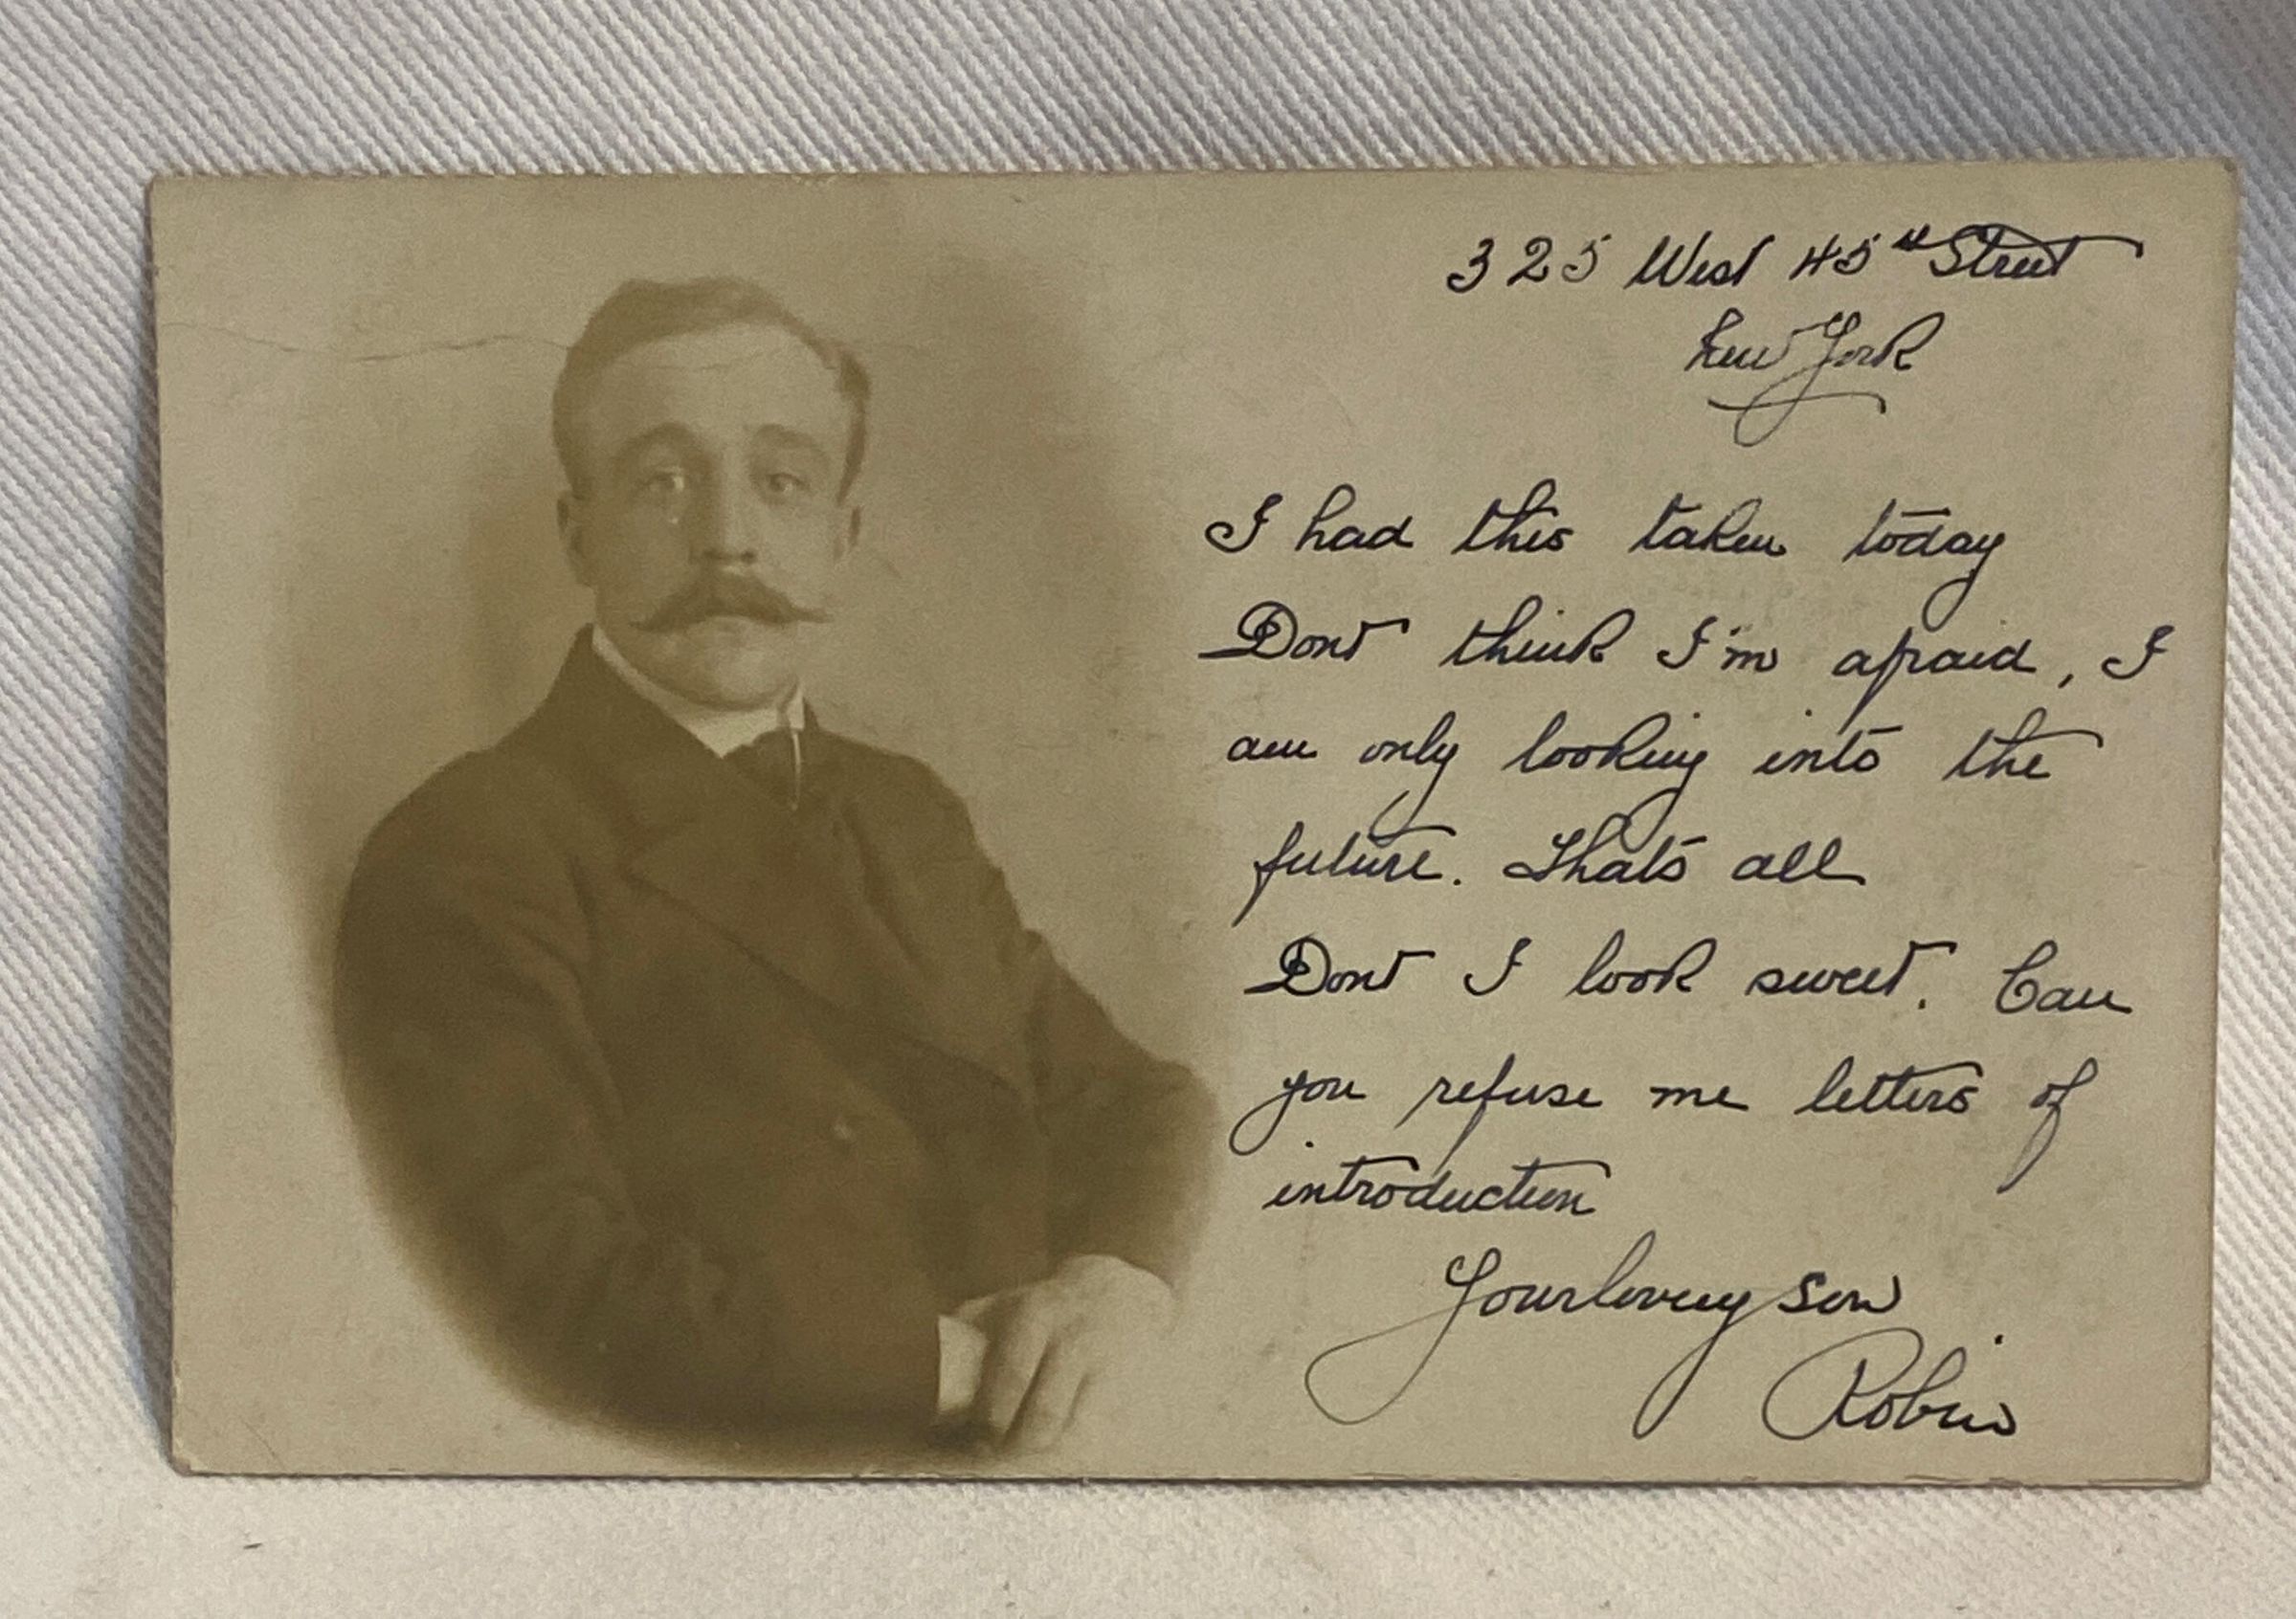 325 West 45th Street
New York
I had this taken today
Dont think I'm afraid, I
am only looking into the
future. Thats all
Dont I look sweet. Can
you refuse me letters of
introduction
Your loving son
Robin